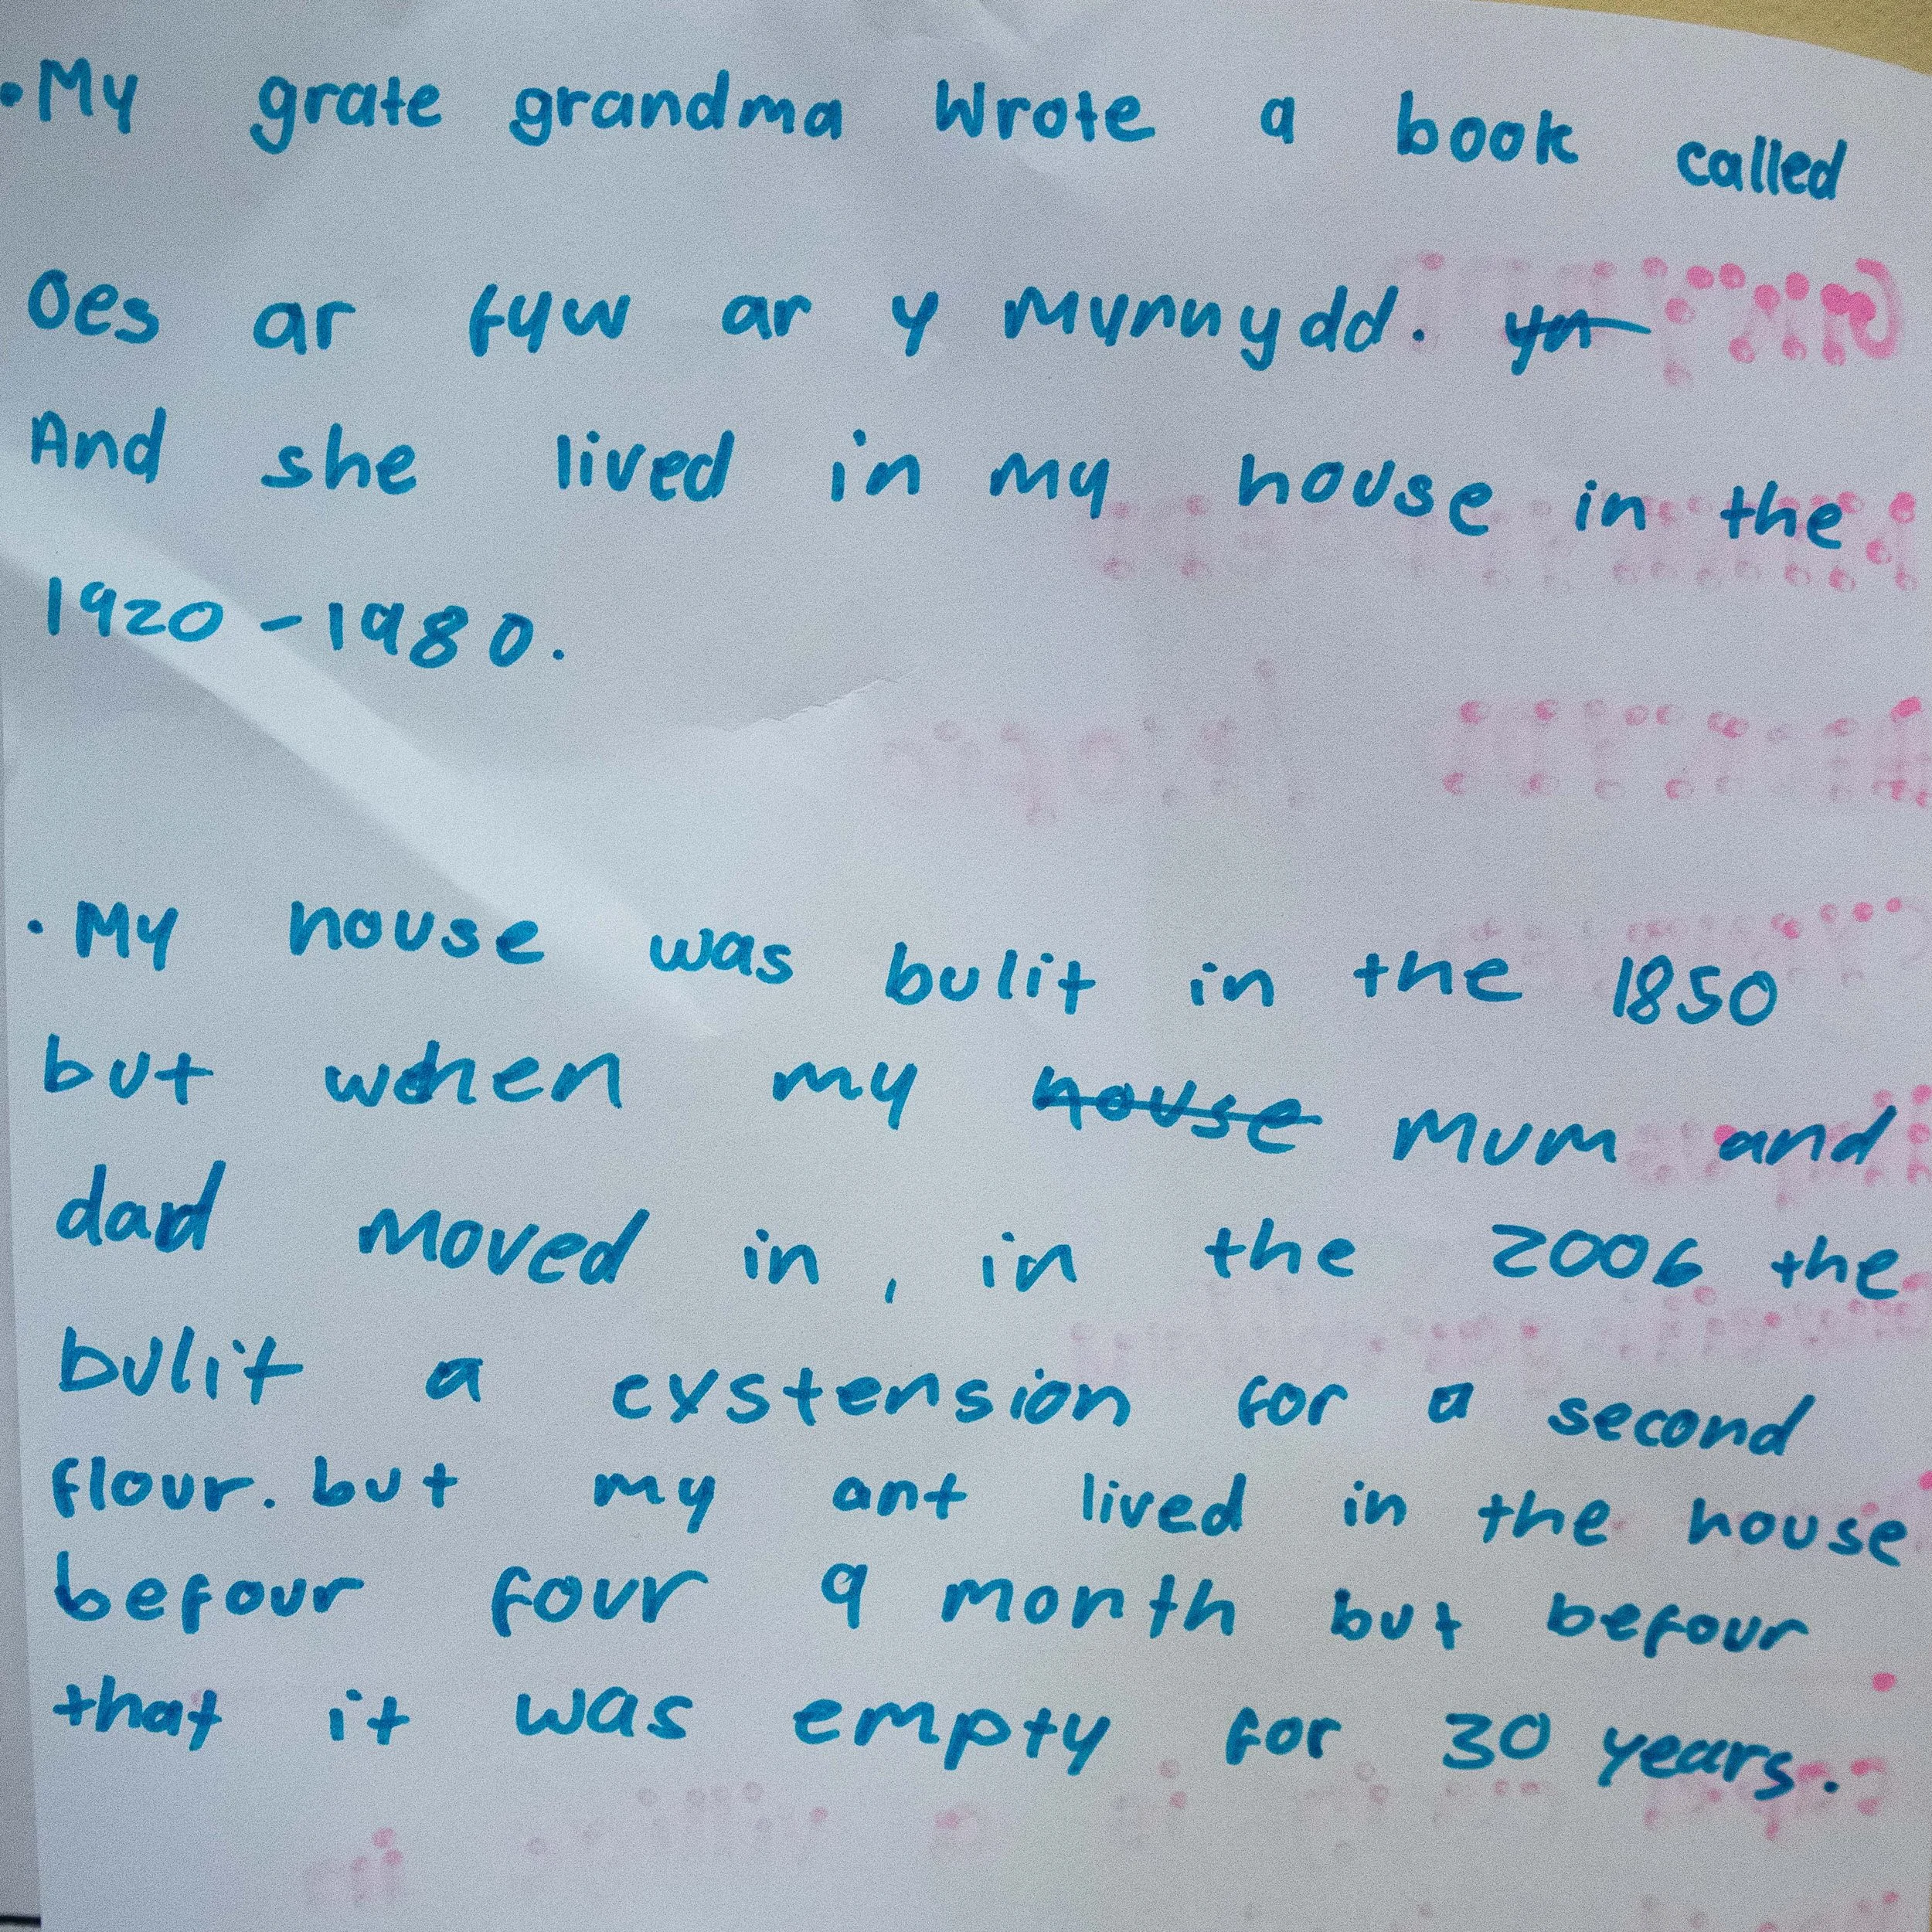 • My grate grandma wrote a book called
Oes ar fyw ar y mynnydd. yn
And she lived in my house in the
1920 - 1980.
• My house was bulit in the 1850
but when my house mum and
dad moved in, in the 2006 the
bulit a exstension for a second
flour. but my ant lived in the house
befour four 9 month but befour
that it was empty for 30 years.